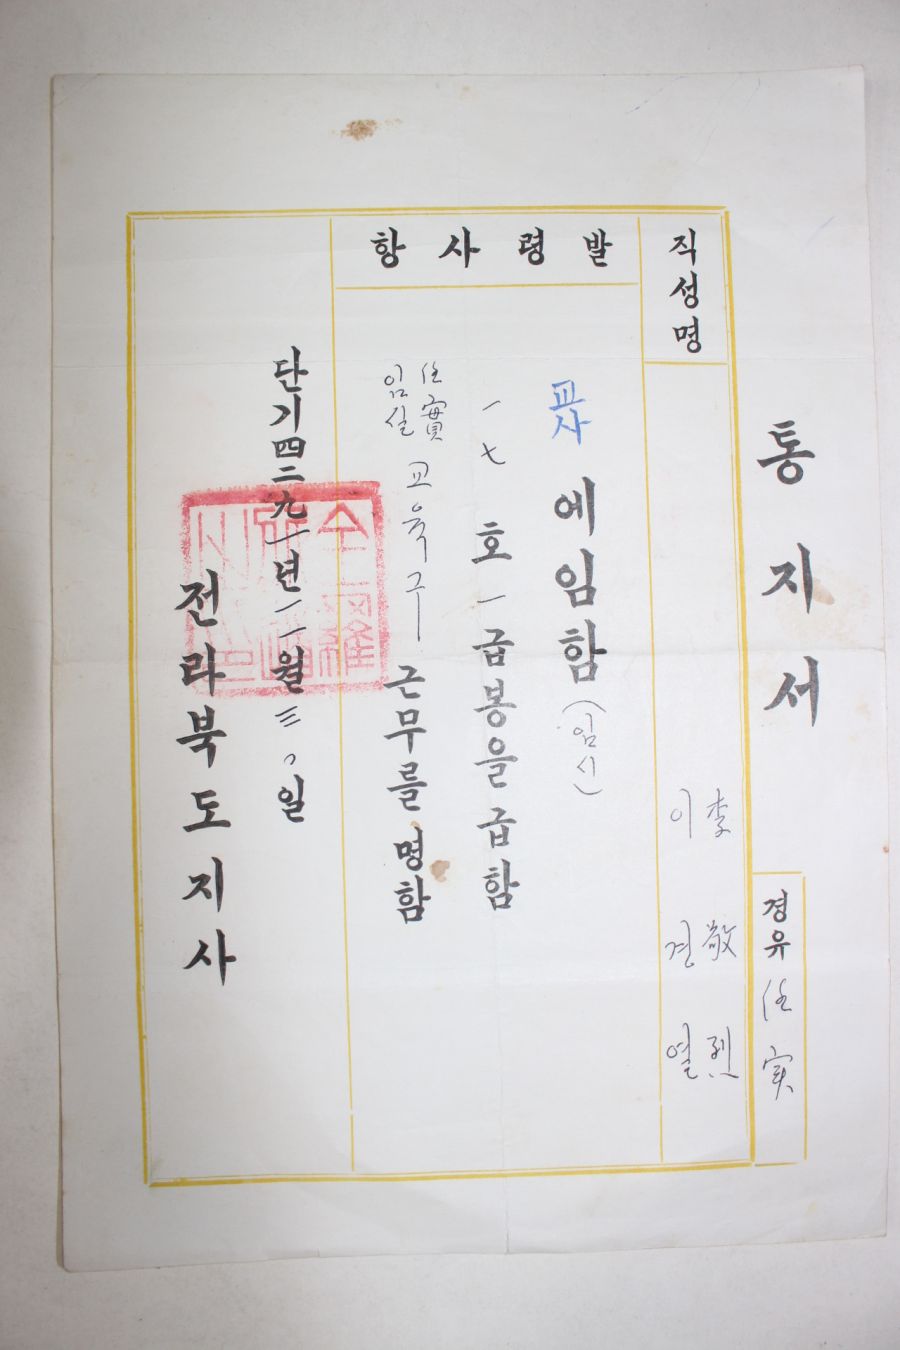 통지서
경유 任実
직성명
李敬烈
이경열
발령사항
교사에임함(임시)
一七호一급봉을급함
任實
임실
교육구 근무를명함
단기四二九一년一一월三〇일
전라북도지사